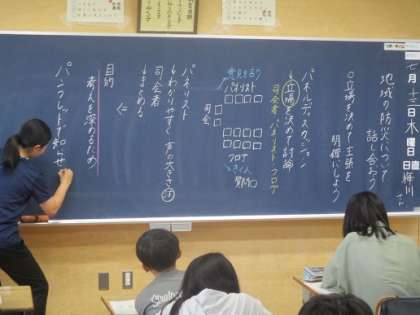 七月十三日木曜日
日直 梅川
地域の防災について
話し合おう
○立場を決めて主張を
明確にしよう
パネルディスカッション
↓立場を決めて討論
司会者 パネリスト フロア
パネリスト
司会
フロア
きく人
質問○
パネリスト
↓わかりやすく 声の大きさ
司会者
↓まとめる
目的
考えを深めるため
パンフレットで知らせ